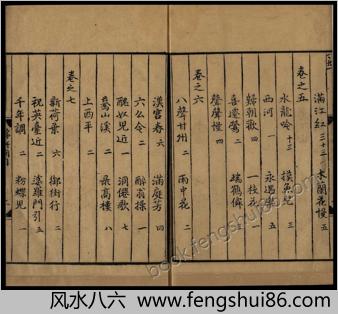 滿江紅 三十三 木蘭花慢 五
卷之五
水龍吟 十三 摸魚兒 三
西河 一 永遇樂 五
歸朝歌 一枝花 一
喜遷鶯 二 瑞鶴僊
聲聲慢 四
卷之六
八聲甘州 二 雨中花 二
漢宮春 六 滿庭芳 四
六么令 二 醉翁操 一
醜奴兒近 一 洞僊歌 七
驀山溪 二 最高樓 八
上西平 二
卷之七
新荷葉 六 御街行 二
祝英臺近 二 婆羅門引 五
千年調 二 粉蝶兒 一
book.fengshui86.com
风水八六 www.fengshui86.com